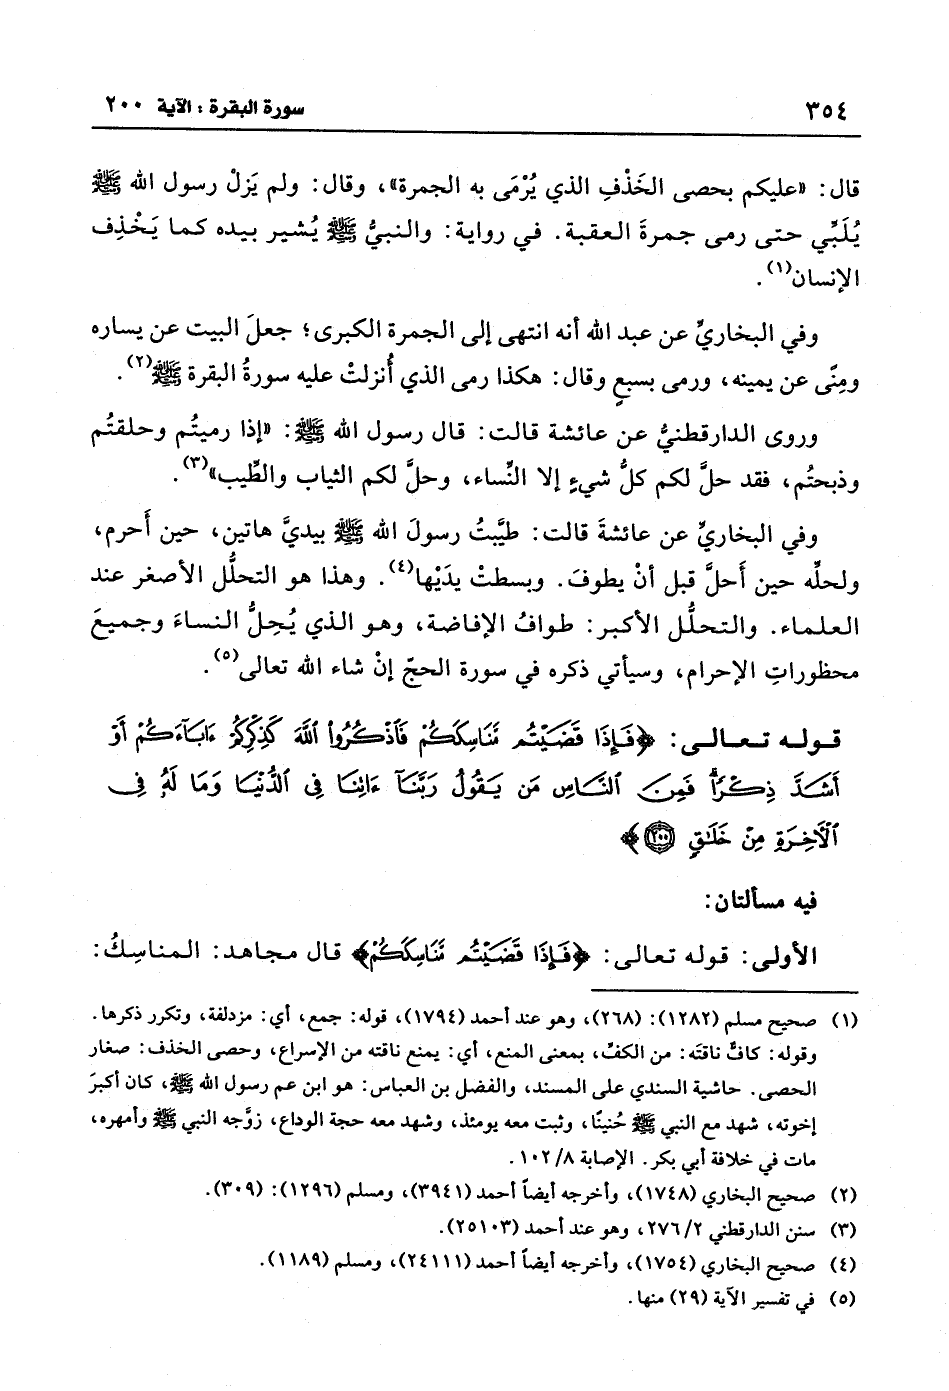 ٣٥٤ سورة البقرة : الآية ٢٠٠
قال: «عليكم بحصى الخَذْفِ الذي يُرْمَى به الجمرة»، وقال: ولم يَزلْ رسول الله ﷺ
يُلَبِّي حتى رمى جمرةَ العقبة. في رواية: والنبيُّ ﷺ يُشير بيده كما يَخْذِف
الإنسان(١).
وفي البخاريِّ عن عبد الله أنه انتهى إلى الجمرة الكبرى؛ جعلَ البيت عن يساره
ومِنًى عن يمينه، ورمى بسبعٍ وقال: هكذا رمى الذي أُنزلتْ عليه سورةُ البقرة ﷺ(٢).
وروى الدارقطنيُّ عن عائشة قالت: قال رسول الله ﷺ: «إذا رميتُم وحلقتُم
وذبحتُم، فقد حلَّ لكم كلُّ شيءٍ إلا النِّساء، وحلَّ لكم الثياب والطِّيب»(٣).
وفي البخاريِّ عن عائشةَ قالت: طيَّبتُ رسولَ الله ﷺ بيديَّ هاتين، حين أَحرم،
ولحلِّه حين أَحلَّ قبل أنْ يطوفَ. وبسطتْ يدَيْها(٤). وهذا هو التحلُّل الأصغر عند
العلماء. والتحلُّل الأكبر: طوافُ الإفاضة، وهو الذي يُحِلُّ النساءَ وجميعَ
محظوراتِ الإحرام، وسيأتي ذكره في سورة الحجّ إنْ شاء الله تعالى(٥).
قوله تعالى: ﴿فَإِذَا قَضَيْتُم مَّنَاسِكَكُمْ فَٱذْكُرُوا۟ ٱللَّهَ كَذِكْرِكُمْ ءَابَآءَكُمْ أَوْ
أَشَدَّ ذِكْرًا ۗ فَمِنَ ٱلنَّاسِ مَن يَقُولُ رَبَّنَآ ءَاتِنَا فِى ٱلدُّنْيَا وَمَا لَهُۥ فِى
ٱلْآخِرَةِ مِنْ خَلَٰقٍ ٢٠٠﴾
فيه مسألتان:
الأولى: قوله تعالى: ﴿فَإِذَا قَضَيْتُم مَّنَاسِكَكُمْ﴾ قال مجاهد: المناسِكُ:
(١) صحيح مسلم (١٢٨٢): (٢٦٨)، وهو عند أحمد (١٧٩٤)، قوله: جمع، أي: مزدلفة، وتكرر ذكرها.
وقوله: كافٌّ ناقتَه: من الكفِّ، بمعنى المنع، أي: يمنع ناقته من الإسراع، وحصى الخذف: صغار
الحصى. حاشية السندي على المسند، والفضل بن العباس: هو ابن عم رسول الله ﷺ، كان أكبرَ
إخوته، شهد مع النبي ﷺ حُنينًا، وثبت معه يومئذ، وشهد معه حجة الوداع، زوَّجه النبي ﷺ وأمهره،
مات في خلافة أبي بكر. الإصابة ٨/ ١٠٢.
(٢) صحيح البخاري (١٧٤٨)، وأخرجه أيضاً أحمد (٣٩٤١)، ومسلم (١٢٩٦): (٣٠٩).
(٣) سنن الدارقطني ٢/ ٢٧٦، وهو عند أحمد (٢٥١٠٣).
(٤) صحيح البخاري (١٧٥٤)، وأخرجه أيضاً أحمد (٢٤١١١)، ومسلم (١١٨٩).
(٥) في تفسير الآية (٢٩) منها.